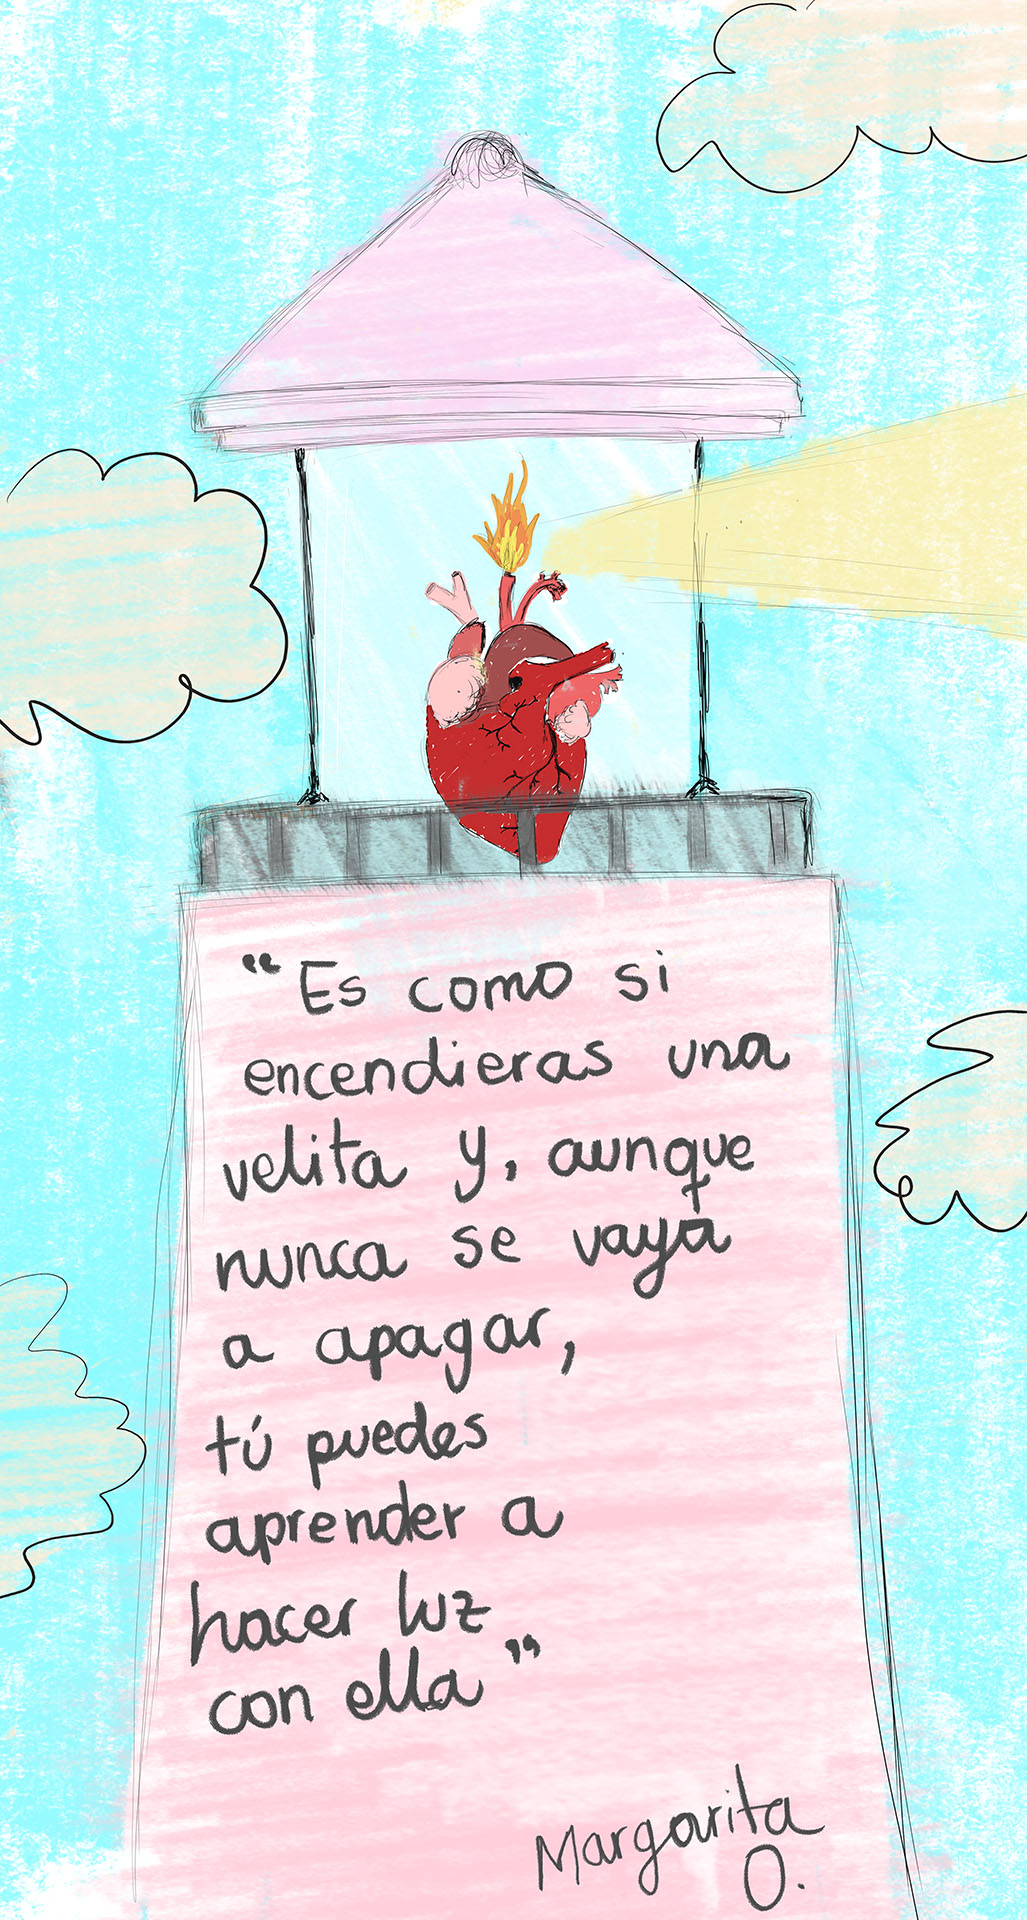 “Es como si
encendieras una
velita y, aunque
nunca se vaya
a apagar,
tú puedes
aprender a
hacer luz
con ella”
Margarita
O.